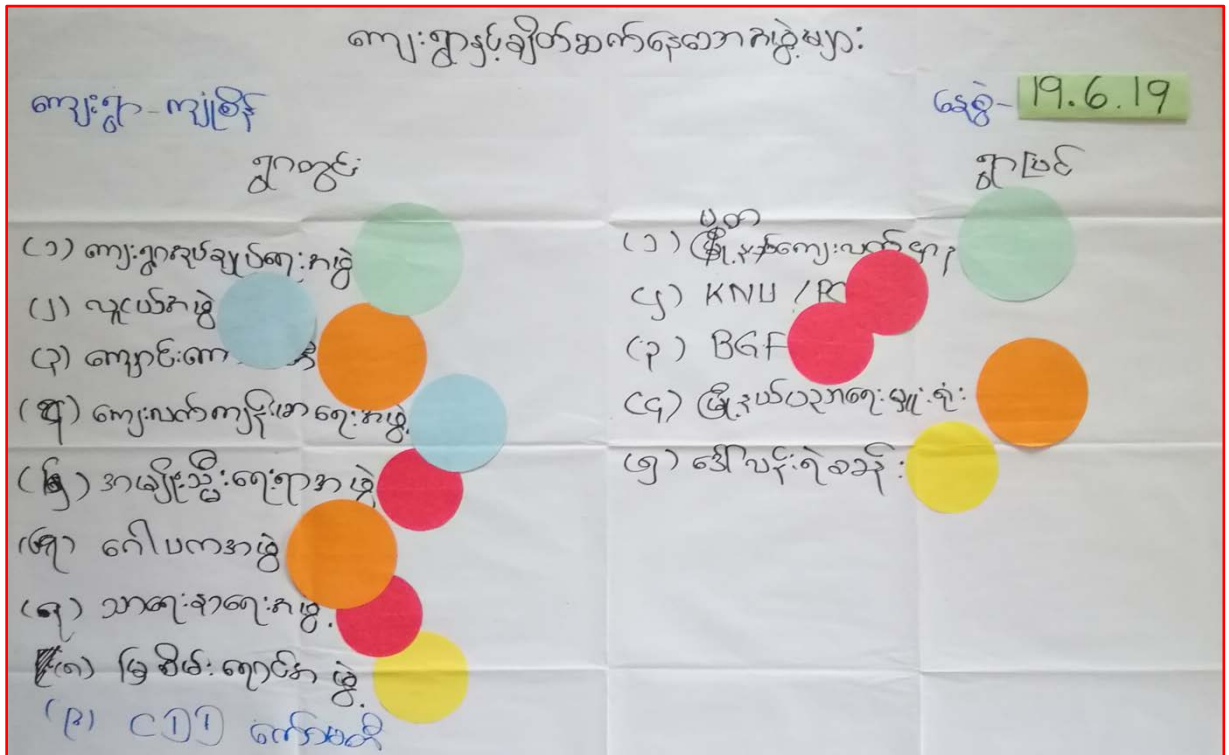 ကျေးရွာနှင့်ချိတ်ဆက်နေသောအဖွဲ့များ
ကျေးရွာ - ကျုံစိန်
နေ့စွဲ - 19.6.19
ရွာတွင်း
(၁) ကျေးရွာအုပ်ချုပ်ရေးအဖွဲ့
(၂) လူငယ်အဖွဲ့
(၃)
(၄) ကျေးလက်ကျန်းမာရေးအဖွဲ့
(၅) အမျိုးသ္မီးရေးရာအဖွဲ့
(၆) ဂေါပကအဖွဲ့
(၇) သာရေးနာရေးအဖွဲ့
(၈) မြစိမ်းရောင်အဖွဲ့
(၉) CDD ကော်မတီ
ရွာပြင်
(၁) ကျေးလက်
(၂) KNU /
(၃) BGF
(၄) မြို့နယ်ပညာရေးမှူးရုံး
(၅) ဒေါ်လန်းရဲစခန်း